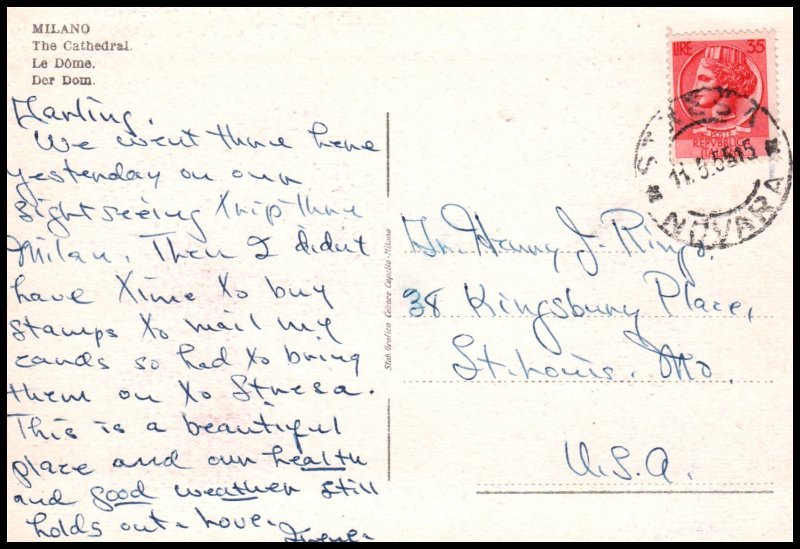 MILANO
The Cathedral.
Le Dôme.
Der Dom.
Darling,
We went thru here
yesterday on our
sightseeing trip thru
Milan. Then I didn't
have time to buy
stamps to mail my
cards so had to bring
them on to Stresa.
This is a beautiful
place and our health
and good weather still
holds out. Love,
Irene.
Stab Grafico Cesare Capello - Milano
LIRE 35
POSTE
REPVBBLICA
ITALIANA
STRESA
NOVARA
Harry J.
38 Kingsbury Place,
St. Louis, Mo.
U.S.A.